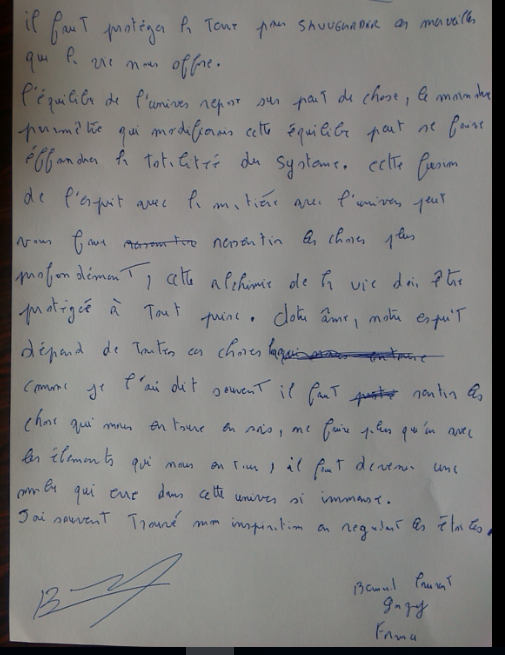 il faut protéger la Terre pour SAUVEGARDER ces merveilles
que la vie nous offre.
l'équilibre de l'univers repose sur peut de chose, le moindre
paramètre qui modifierais cette équilibre peut se faire
éffondrer la totalitée du système. cette fusion
de l'esprit avec la matière avec l'univers peut
vous faire ressentir les choses plus
profondément, cette alchimie de la vie dois être
protégée à Tout prix. Notre âme, notre esprit
dépend de Toutes ces choses
comme je l'ai dit souvent il faut sentir les
chose qui nous entoure en sois, ne faire plus qu'un avec
les éléments qui nous entoure, il faut devenir une
ombre qui erre dans cette univers si immense.
J'ai souvent Trouvé mon inspiration en regardant les étoiles.
France